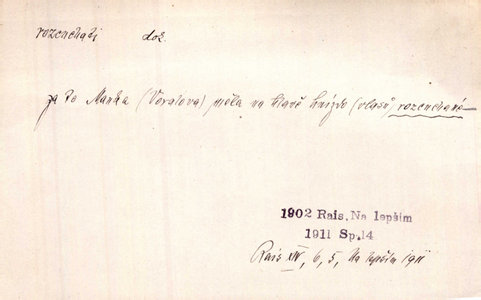 rozcuchati dok.
za to Manka (Voralova) měla na hlavě hnízdo (vlasů) rozcuchané
1902 Rais, Na lepším
1911 Sp.14
Rais XIV, 6, 5, Na lepším 1911